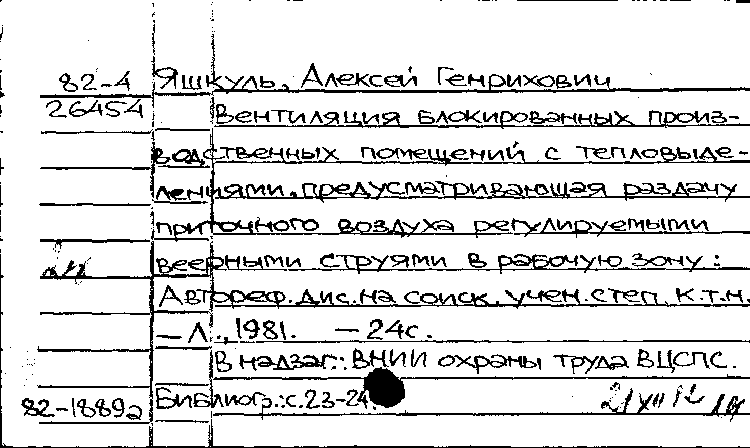 82-4 Яшкуль, Алексей Генрихович
26454 Вентиляция блокированных произ-
водственных помещений с тепловыде-
лениями, предусматривающая раздачу
приточного воздуха регулируемыми
веерными струями в рабочую зону:
Автореф. дис. на соиск. учен. степ. к.т.н.
– Л., 1981. – 24с.
В надзаг.: ВНИИ охраны труда ВЦСПС.
82-1889а Библиогр.: с. 23-24.